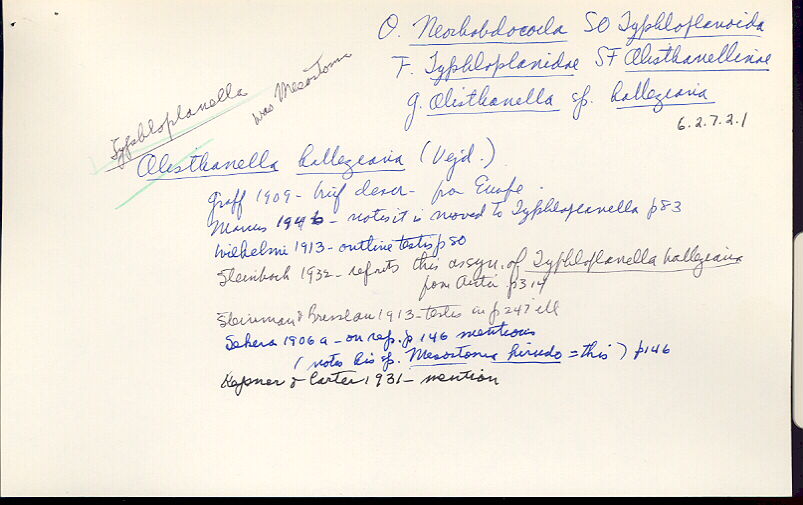 O. Neorhabdocoela SO Typhloplanoida
F. Typhloplanidae SF Olisthanellinae
g. Olisthanella sp. halleziana
6.2.7.2.1
Typhloplanella
was Mesostoma
Olisthanella halleziana (Vejd.)
Graff 1909 - brief descr - from Europe.
Marcus 1946 - notes it is moved to Typhloplanella p83
Wilhelmi 1913 - outline testis p 80
Steinböck 1932 - refers this as syn. of Typhloplanella halleziana
from p314
Steinman & Bresslau 1913 - testes in p247 ill
Sekera 1906a - on rep. p 146 mentions
(notes his sp. Mesostoma hirudo = this) p146
Kepner & Carter 1931 - mention